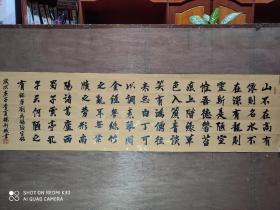 山不在高有
仙則名水不
在深有龍則
靈斯是陋室
惟吾德馨苔
痕上階綠草
色入簾青談
笑有鴻儒往
來無白丁可
以調素琴閱
金經無絲竹
之亂耳無案
牘之勞形南
陽諸葛廬西
蜀子雲亭孔
子云何陋之
有 劉禹錫陋室銘